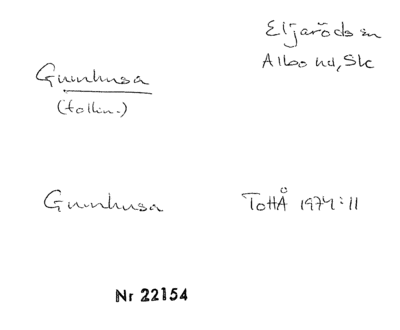 Eljaröds sn
Albo hd, Sk
Gunnhusa
(tollin.)
Gunnhusa
TottÅ 1974:11
Nr 22154